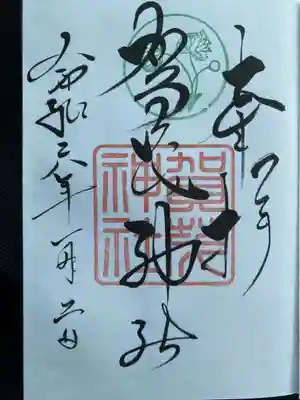 奉拝
賀茂神社
賀茂
神社
令和
年一月